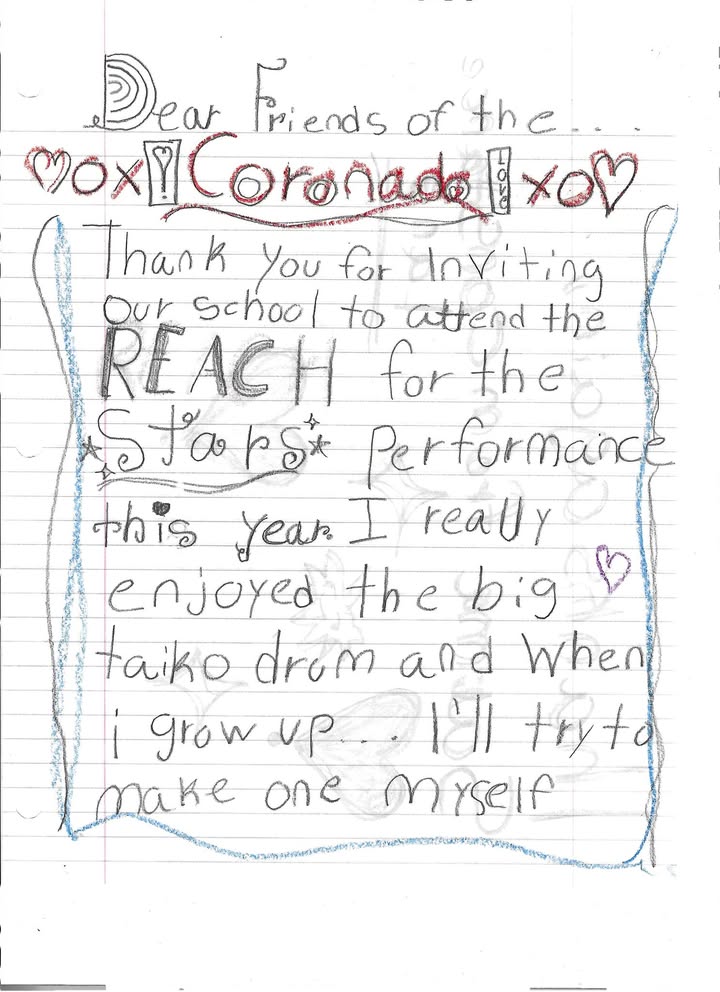 Dear Friends of the....
♡ox! Coronado LOVE xo♡
Thank you for Inviting
our school to attend the
REACH for the
Stars performance
this year. I really
enjoyed the big
taiko drum and When
i grow up... I'll try to
make one myself